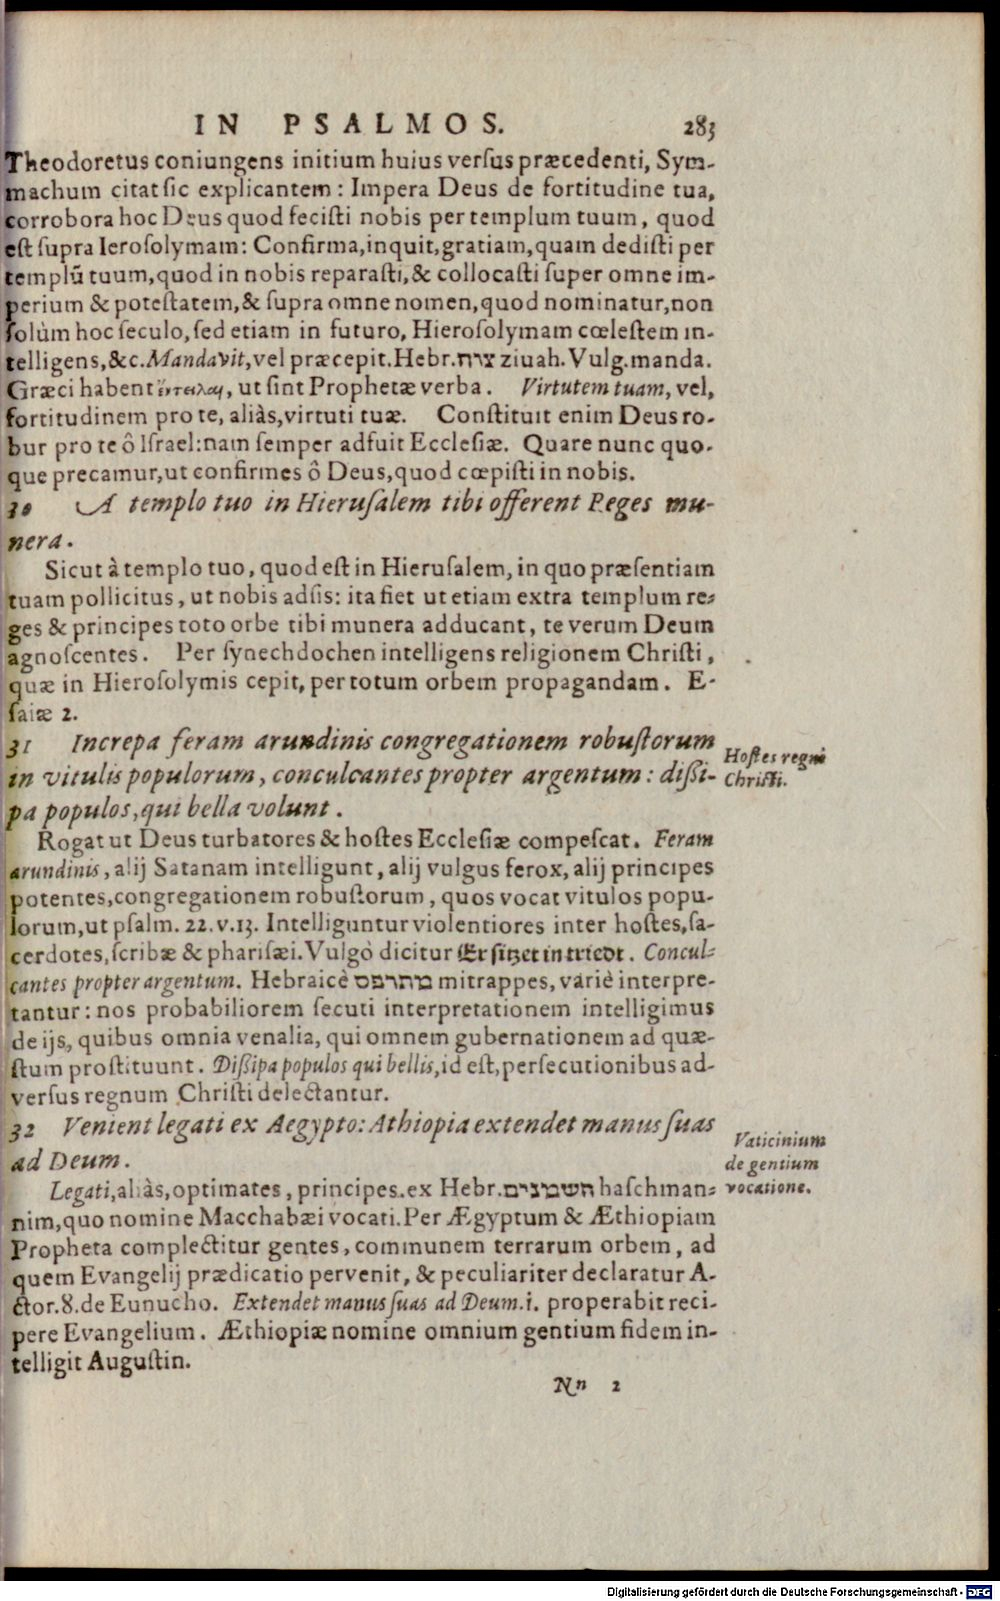 IN PSALMOS. 283
Theodoretus coniungens initium huius verſus præcedenti, Sym-
machum citat ſic explicantem: Impera Deus de fortitudine tua,
corrobora hoc Deus quod feciſti nobis per templum tuum, quod
eſt ſupra Ieroſolymam: Confirma, inquit, gratiam, quam dediſti per
templũ tuum, quod in nobis reparaſti, & collocaſti ſuper omne im-
perium & poteſtatem, & ſupra omne nomen, quod nominatur, non
ſolùm hoc ſeculo, ſed etiam in futuro, Hieroſolymam cœleſtem in-
telligens, &c. Mandavit, vel præcepit. Hebr. צוה ziuah. Vulg. manda.
Græci habent ἔντειλαι, ut ſint Prophetæ verba. Virtutem tuam, vel,
fortitudinem pro te, aliàs, virtuti tuæ. Conſtituit enim Deus ro-
bur pro te ô Iſrael: nam ſemper adfuit Eccleſiæ. Quare nunc quo-
que precamur, ut confirmes ô Deus, quod cœpiſti in nobis.
30 A templo tuo in Hieruſalem tibi offerent Reges mu-
nera.
Sicut à templo tuo, quod eſt in Hieruſalem, in quo præſentiam
tuam pollicitus, ut nobis adſis: ita fiet ut etiam extra templum re-
ges & principes toto orbe tibi munera adducant, te verum Deum
agnoſcentes. Per ſynechdochen intelligens religionem Chriſti,
quæ in Hieroſolymis cepit, per totum orbem propagandam. E-
ſaiæ 2.
31 Increpa feram arundinis congregationem robuſtorum
in vitulis populorum, conculcantes propter argentum: diſſi-
pa populos, qui bella volunt.
Hoſtes regni
Chriſti.
Rogat ut Deus turbatores & hoſtes Eccleſiæ compeſcat. Feram
arundinis, alij Satanam intelligunt, alij vulgus ferox, alij principes
potentes, congregationem robuſtorum, quos vocat vitulos popu-
lorum, ut pſalm. 22. v. 13. Intelliguntur violentiores inter hoſtes, ſa-
cerdotes, ſcribæ & phariſæi. Vulgò dicitur Er ſitzet im triedt. Concul-
cantes propter argentum. Hebraicè מתרפס mitrappes, variè interpre-
tantur: nos probabiliorem ſecuti interpretationem intelligimus
de ijs, quibus omnia venalia, qui omnem gubernationem ad quæ-
ſtum proſtituunt. Diſſipa populos qui bellis, id eſt, perſecutionibus ad-
verſus regnum Chriſti delectantur.
32 Venient legati ex Aegypto: Athiopia extendet manus ſuas
ad Deum.
Vaticinium
de gentium
vocatione.
Legati, aliàs, optimates, principes. ex Hebr. חשמנים haſchman-
nim, quo nomine Macchabæi vocati. Per Ægyptum & Æthiopiam
Propheta complectitur gentes, communem terrarum orbem, ad
quem Evangelij prædicatio pervenit, & peculiariter declaratur A-
ctor. 8. de Eunucho. Extendet manus ſuas ad Deum. i. properabit reci-
pere Evangelium. Æthiopiæ nomine omnium gentium fidem in-
telligit Auguſtin.
Nn 2
Digitalisierung gefördert durch die Deutsche Forschungsgemeinschaft - DFG